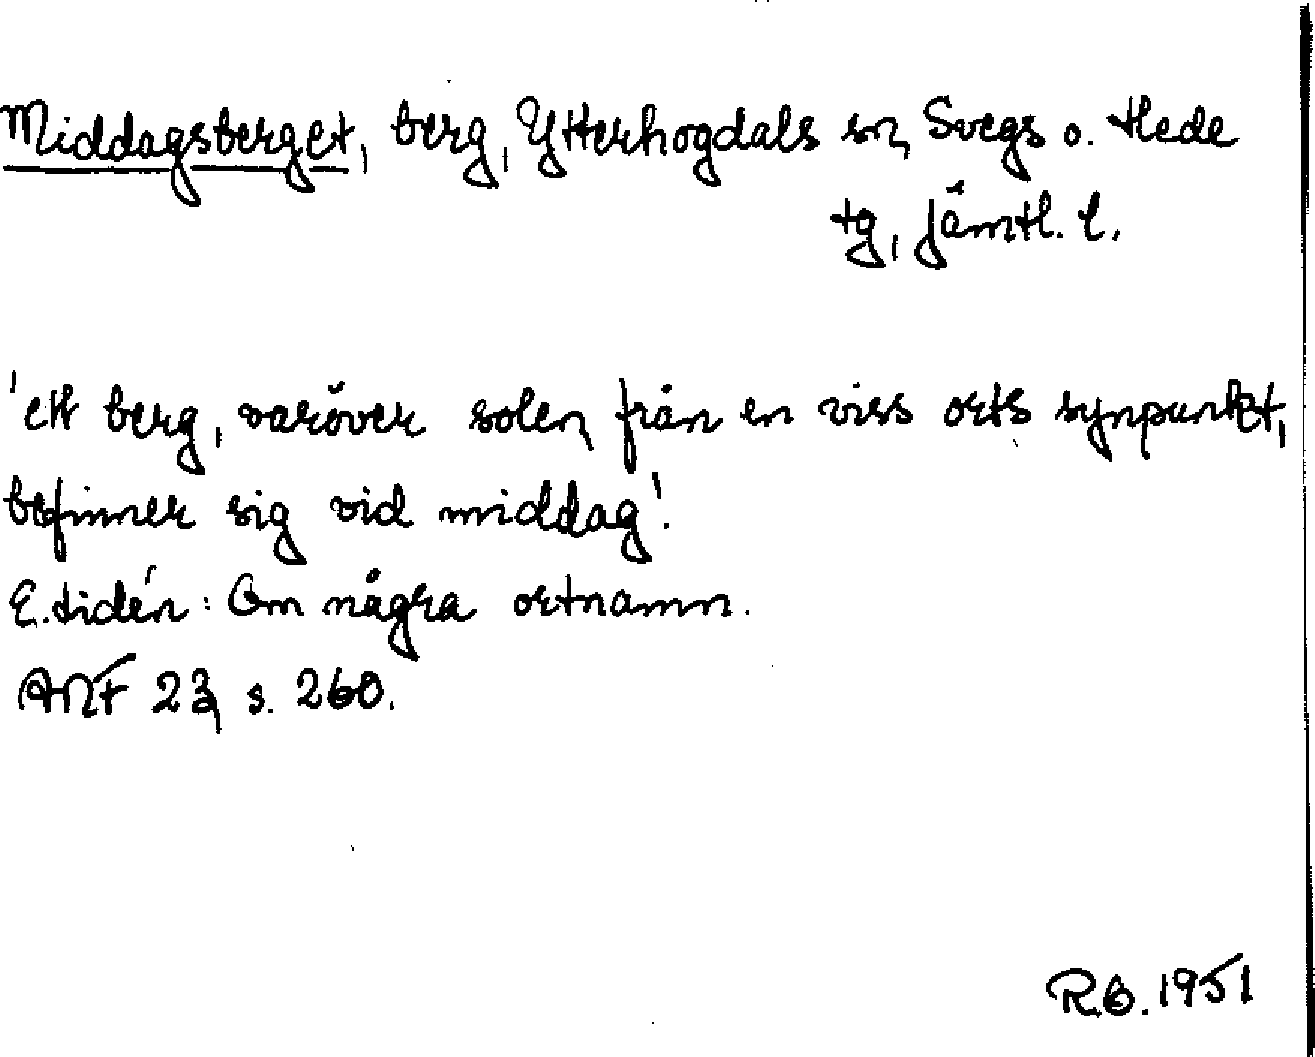 Middagsberget, berg, Ytterhogdals sn, Svegs o. Hede
tg, Jämtl. l.
'ett berg, varöver solen, från en viss orts synpunkt,
befinner sig vid middag'.
E. Lidén: Om några ortnamn.
ANF 23, s. 260.
R.G. 1951